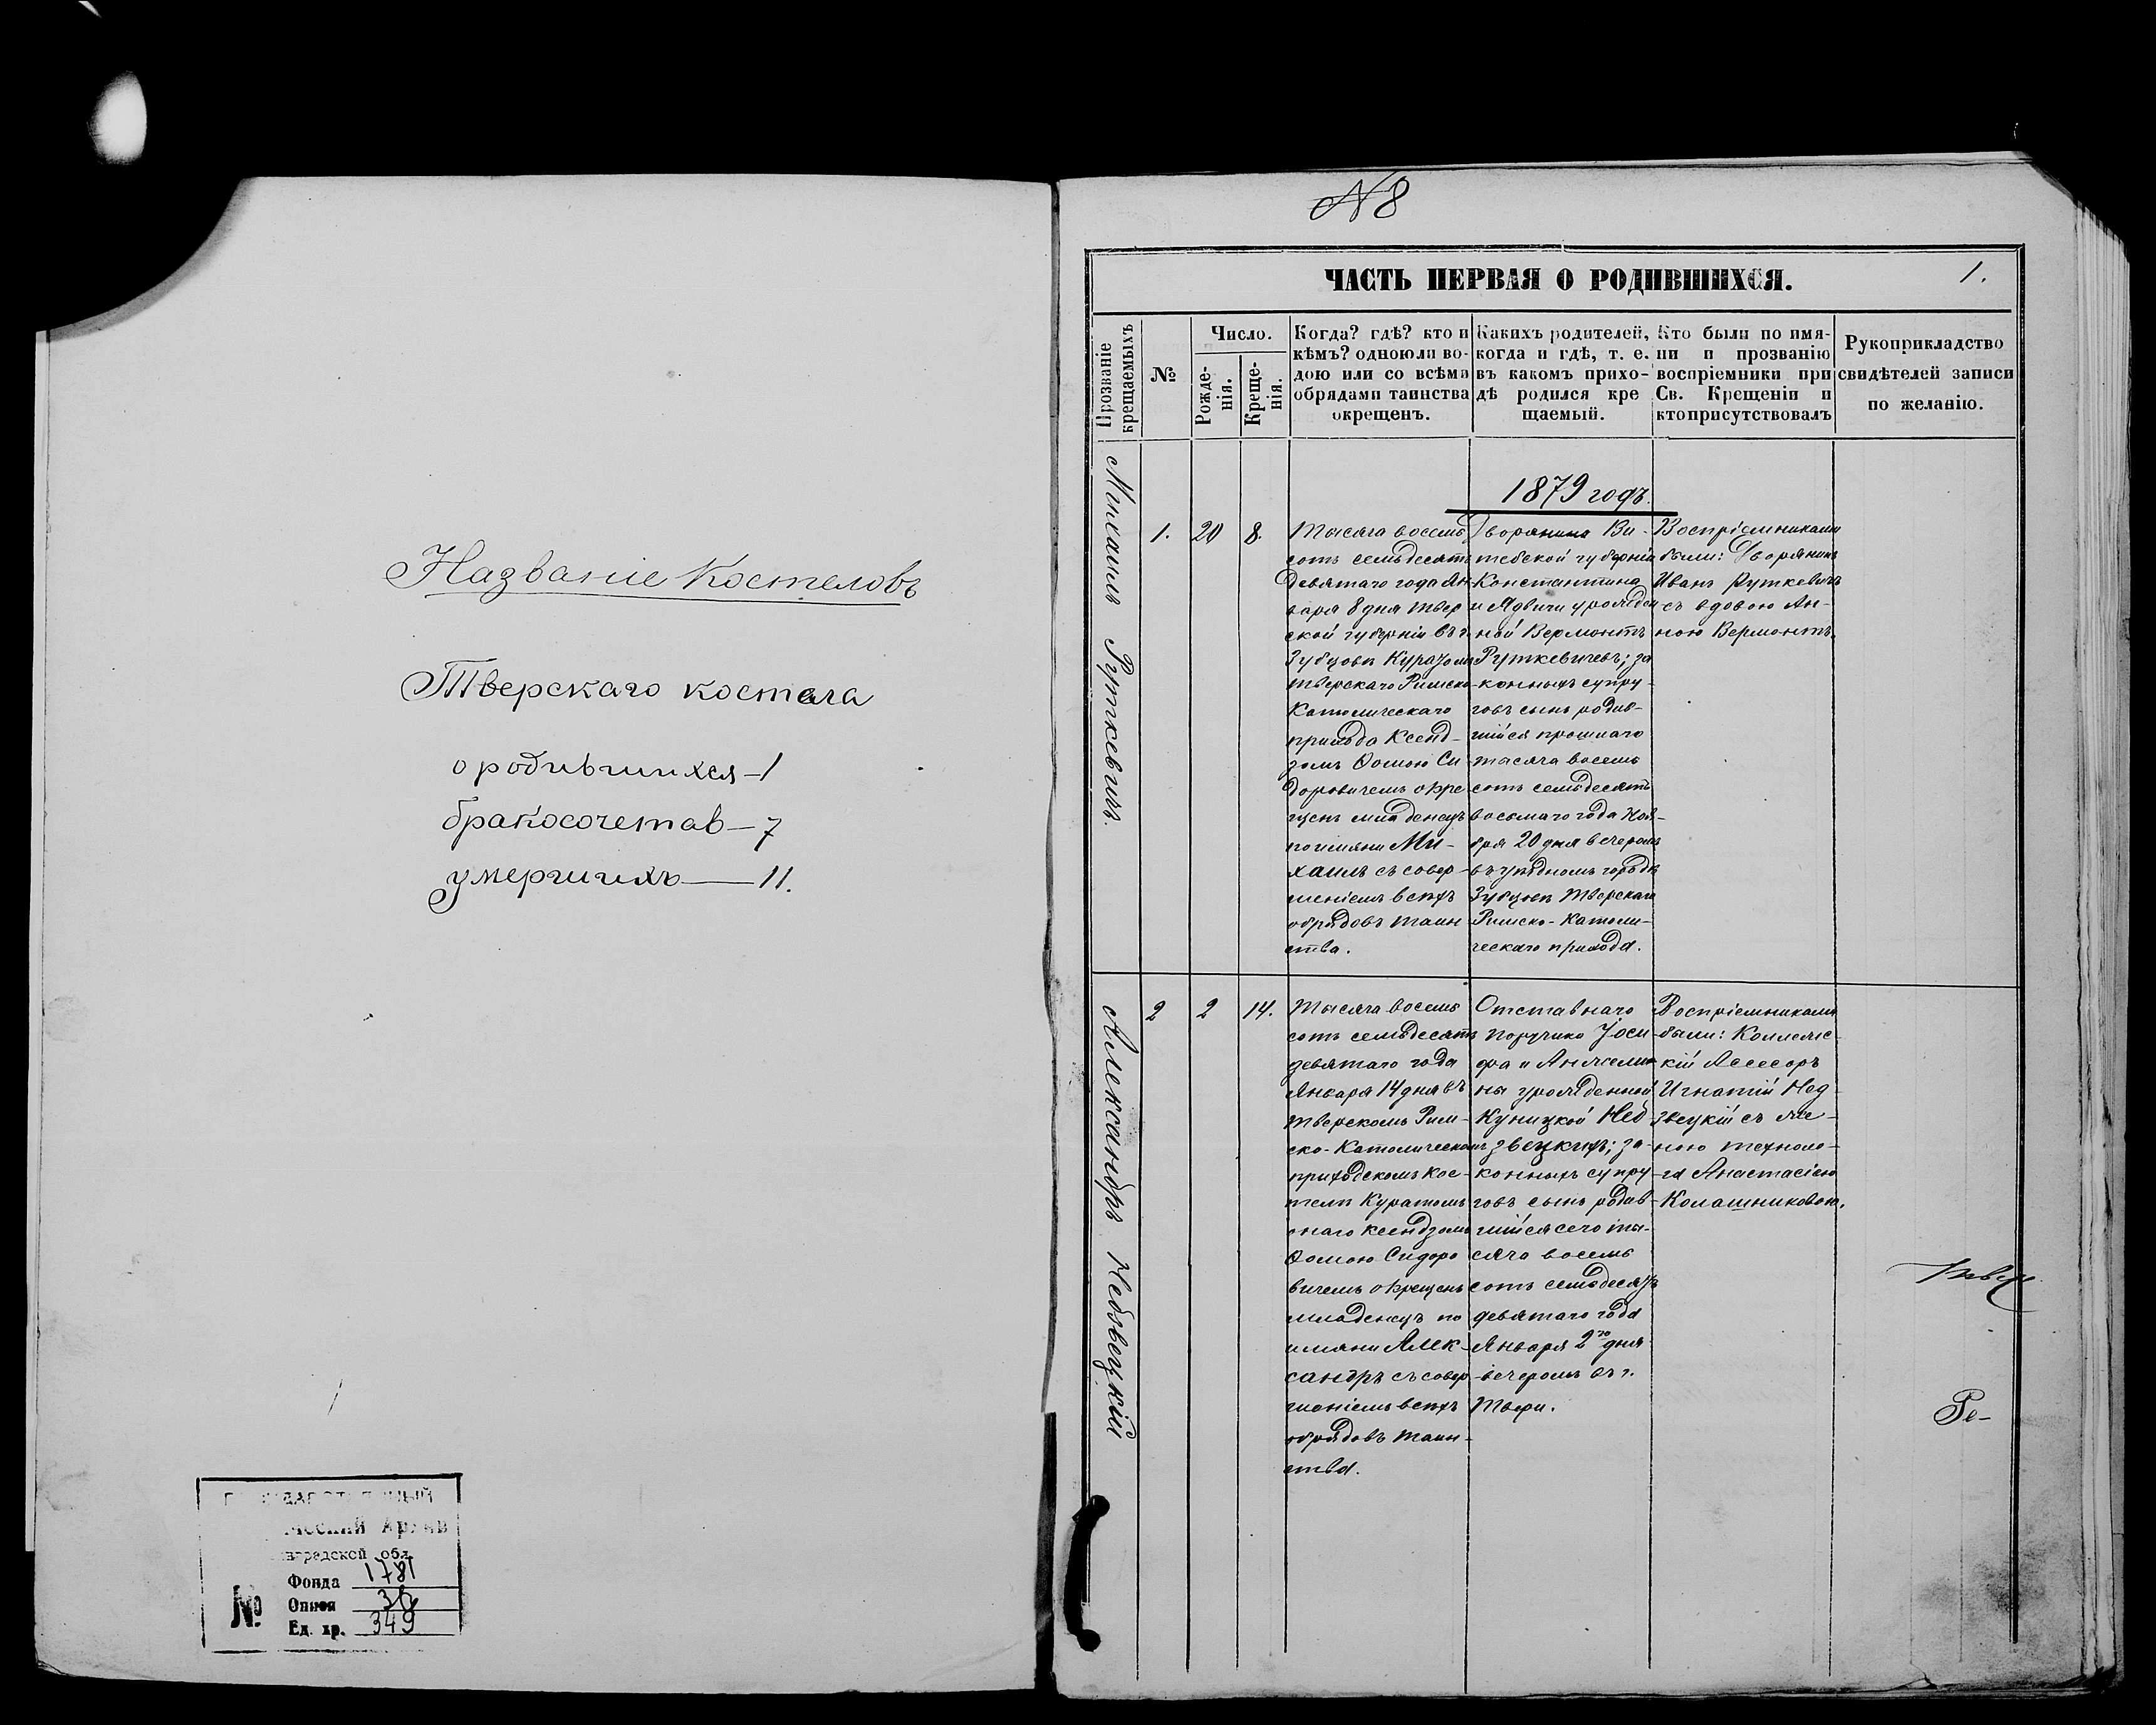 Названіе Костеловъ
Тверскаго костела
о родившихся – 1
бракосочетав – 7
умершихъ — 11.
Архив
градской обл.
№
Фонда 1781
Опися 36
Ед. хр. 349
№ 8
ЧАСТЬ ПЕРВАЯ О РОДИВШИХСЯ.
1.
Прозваніе
крещаемыхъ
№
Число.
Рожде-
нія.
Креще-
нія.
Когда? гдѣ? кто и
кѣмъ? одною ли во-
дою или со всѣми
обрядами таинства
окрещенъ.
Какихъ родителей,
когда и гдѣ, т. е.
въ какомъ прихо-
дѣ родился кре
щаемый.
Кто были по имя-
ни и прозванію
воспріемники при
Св. Крещеніи и
кто присутствовалъ
Рукоприкладство
свидѣтелей записи
по желанію.
1879 годъ.
Михаилъ Руткевичъ.
1.
20
8.
Тысяча восемь
сотъ семьдесятъ
девятаго года Ян-
варя 8 дня Твер
ской губерніи въ г.
Зубцовѣ Куратомъ
Тверскаго Римско-
Католическаго
прихода Ксенд-
зомъ Ѳомою Си
доровичемъ окре
щенъ младенецъ
по имяни Ми-
хаилъ съ совер-
шеніемъ всѣхъ
обрядовъ таин
ства.
Дворянина Ви-
тебской губерніи
Константина
и Ядвиги урожден
ной Вермонтъ
Руткевичевъ; за
конныхъ супру-
говъ сынъ родив-
шійся прошлаго
тысяча восемь
сотъ семьдесятъ
восьмаго года Ноя-
бря 20 дня вечеромъ
въ уѣздномъ городѣ
Зубцовѣ Тверскаго
Римско-Католи-
ческаго прихода.
Воспріемниками
были: Дворянинъ
Иванъ Руткевичъ
съ вдовою Ан-
ною Вермонтъ.
Александръ Недзвецкій
2
2
14.
Тысяча восемь
сотъ семьдесятъ
девятаго года
Января 14 дня въ
Тверскомъ Рим-
ско-Католическомъ
приходскомъ Кос-
телѣ Куратомъ
онаго Ксендзомъ
Ѳомою Сидоро
вичемъ окрещенъ
младенецъ по
имяни Алек-
сандръ съ совер
шеніемъ всѣхъ
обрядовъ таин-
ства.
Отставнаго
Поручика Іоси
фа и Анжели
ны урожденной
Куницкой Нед-
звецкихъ; за-
конныхъ супру-
говъ сынъ родив-
шійся сего ты-
сяча восемь
сотъ семьдесятъ
девятаго года
Января 2го дня
вечеромъ въ г.
Твери.
Воспріемниками
были: Коллежс-
кій Ассесоръ
Игнатій Нед
звецкій съ же-
ною техноло-
га Анастасіею
Колашниковою.
Ре-